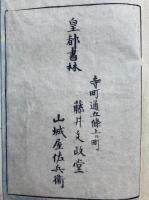 皇都書林
寺町通五條上ル町
藤井文政堂
山城屋佐兵衛